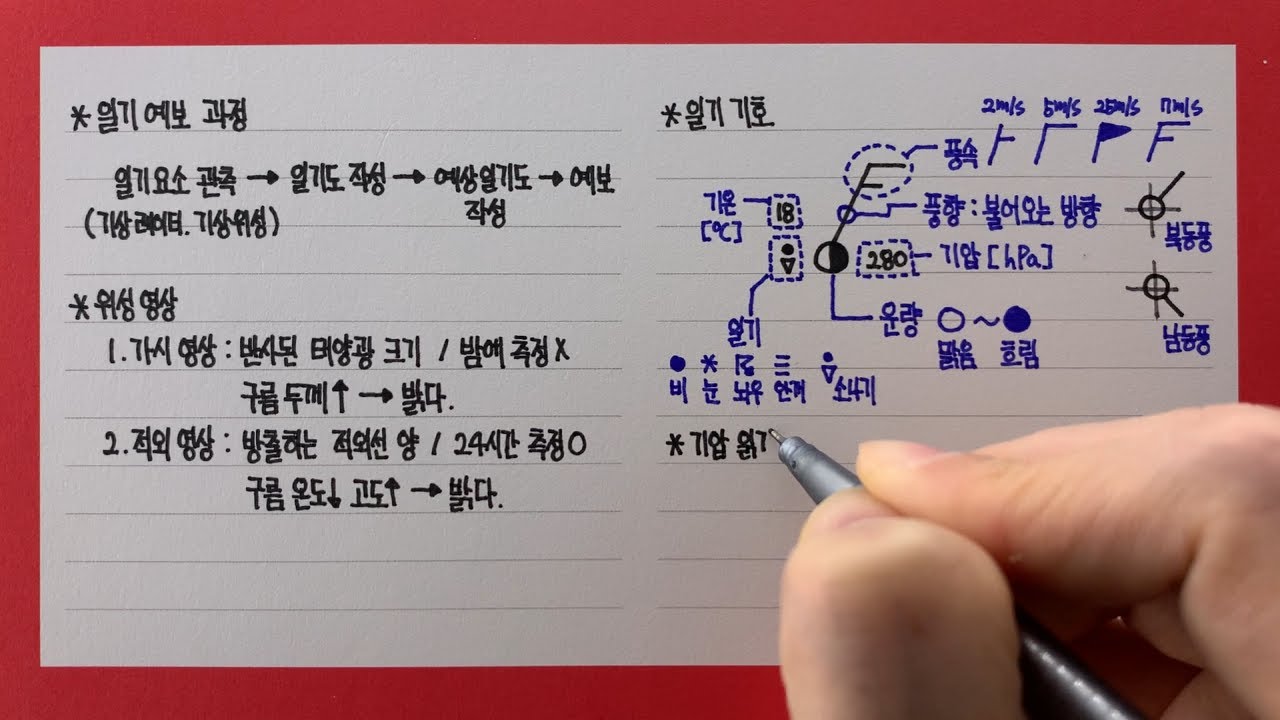 * 일기 예보 과정
일기요소 관측 → 일기도 작성 → 예상일기도 → 예보
(기상레이더. 기상위성) 작성
* 위성 영상
1. 가시 영상 : 반사된 태양광 크기 / 밤에 측정 X
구름 두께↑ → 밝다.
2. 적외 영상 : 방출하는 적외선 양 / 24시간 측정 O
구름 온도↓ 고도↑ → 밝다.
* 일기 기호
2m/s 5m/s 25m/s 7m/s
풍속
기온 18
[℃]
풍향 : 불어오는 방향
북동풍
280 기압 [hPa]
일기
운량 ○ ~ ●
맑음 흐림
남동풍
비 눈 뇌우 안개 소나기
* 기압 읽기